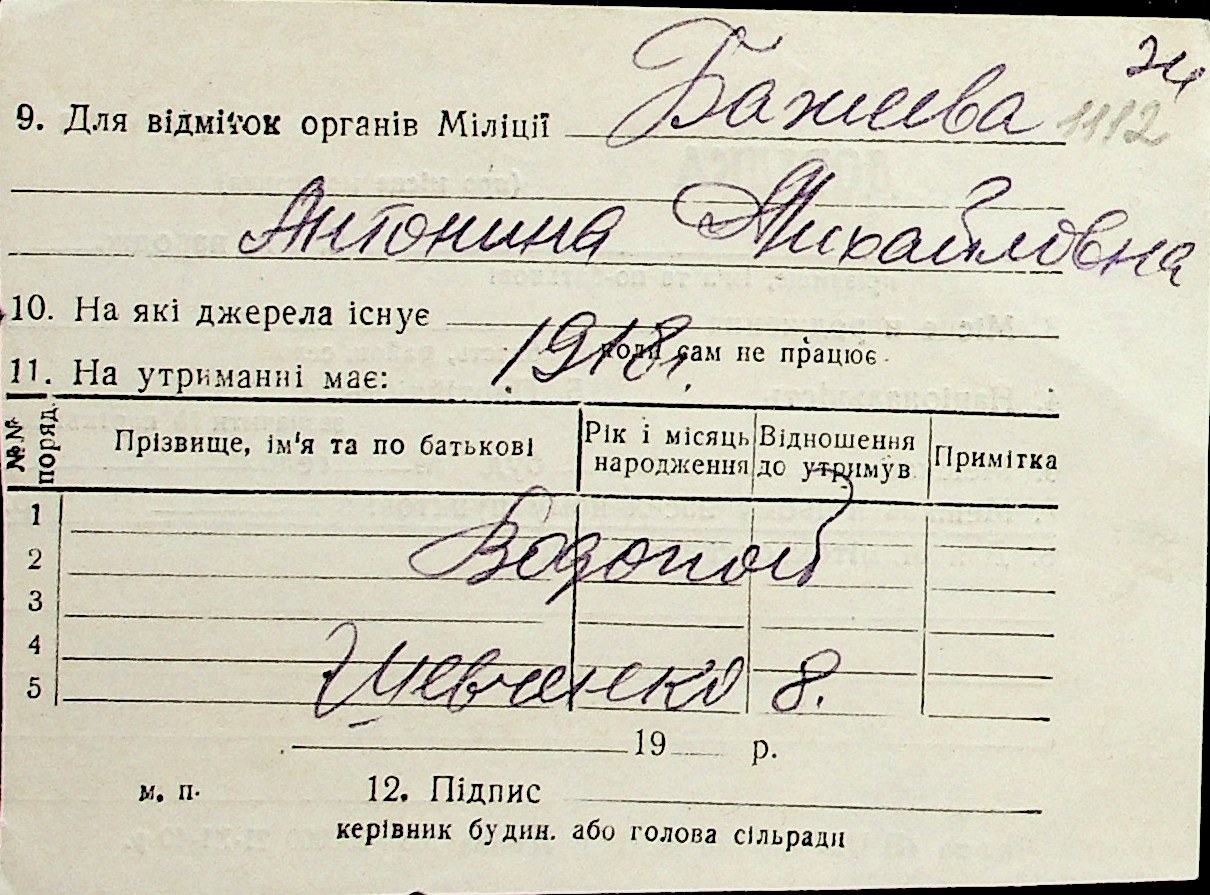 24
9. Для відміток органів Міліції Бажева 1112
Антонина Михайловна
10. На які джерела існує
1918г.
коли сам не працює
11. На утриманні має:
№№ поряд. Прізвище, ім'я та по батькові Рік і місяць народження Відношення до утримув Примітка
1
2 Водопой
3
4
5 Шевченко 8.
19 р.
м. п. 12. Підпис
керівник будин. або голова сільради